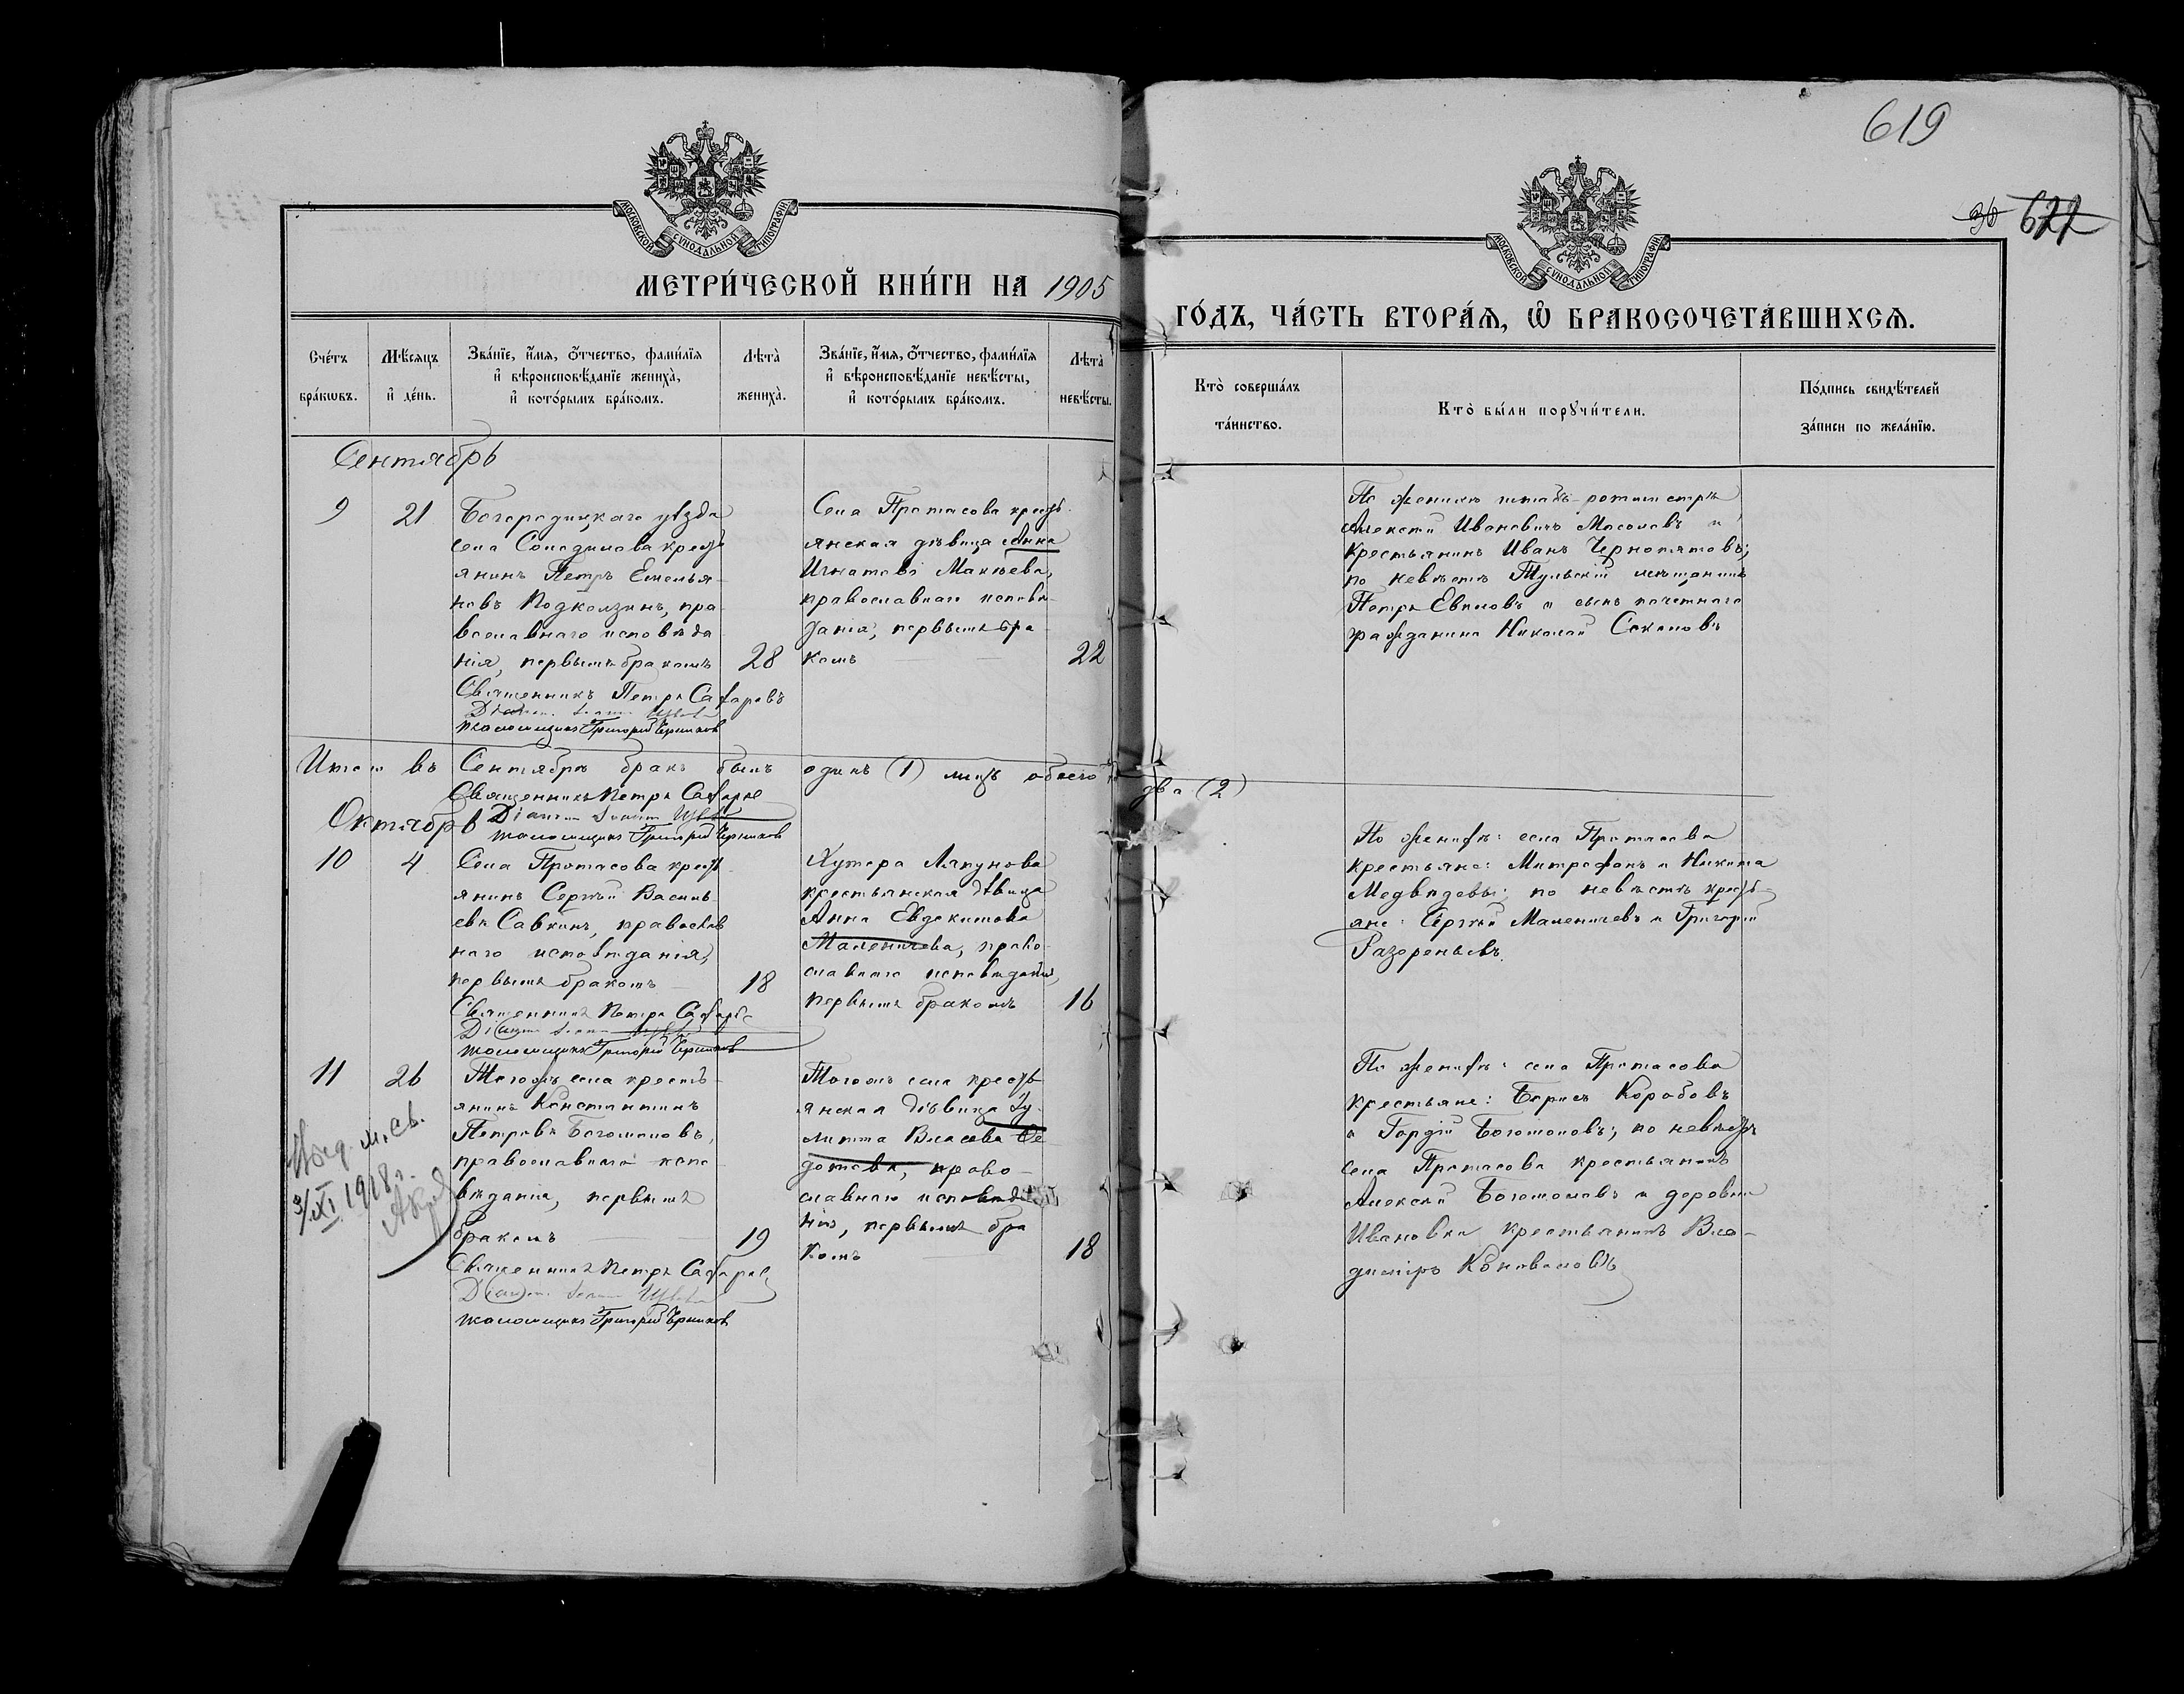 619
36 622
МОСКОВСКОЙ СУНОДАЛЬНОЙ ТИПОГРАФІИ
МОСКОВСКОЙ СУНОДАЛЬНОЙ ТИПОГРАФІИ
МЕТРИ́ЧЕСКОЙ КНИ́ГИ НА 1905
ГО́ДЪ, ЧА́СТЬ ВТОРА́Я, Ѡ БРАКОСОЧЕТА́ВШИХСЯ.
Сче́тъ бра́кѡвъ.
Мѣ́сяцъ и҆ де́нь.
Зва́нїе, и҆́мя, ѻ҆́тчество, фами́лїя и҆ вѣроисповѣ́данїе жениха̀, и҆ кото́рымъ бра́комъ.
Лѣта̀ жениха̀.
Зва́нїе, и҆́мя, ѻ҆́тчество, фами́лїя и҆ вѣроисповѣ́данїе невѣ́сты, и҆ кото́рымъ бра́комъ.
Лѣта̀ невѣ́сты.
Кто̀ соверша́лъ та́инство.
Кто̀ бы́ли порꙋчи́тели.
По́дпись свидѣ́телей за́писи по жела́нїю.
Сентябрь
9
21
Богородицкаго уѣзда
села Солодилова кресть
янинъ Петръ Емелья-
новъ Подколзинъ, пра-
вославнаго исповѣда
нія, первымъ бракомъ
28
Священникъ Петръ Сахаровъ
Діаконъ Іоаннъ
псаломщикъ Григорій
Села Протасова кресть-
янская дѣвица Анна
Игнатова Макѣева,
православнаго исповѣ-
данія, первымъ бра-
комъ
22
По женихѣ штабъ-ротмистръ
Алексѣй Ивановичъ Мосоловъ и
крестьянинъ Иванъ Чернопятовъ;
по невѣстѣ Тульскій мѣщанинъ
Петръ Евимовъ и сынъ почетнаго
гражданина Николай Соколовъ
Итого въ Сентябрѣ бракъ былъ одинъ (1) лицъ обоего
два (2)
Священникъ Петръ Сахаровъ
Діаконъ Іоаннъ
псаломщикъ Григорій
Октябрь
10
4
Села Протасова кресть-
янинъ Сергѣй Василь-
евъ Савкинъ, православ
наго исповѣданія,
первымъ бракомъ
18
Священникъ Петръ Сахаровъ
Діаконъ Іоаннъ
псаломщикъ Григорій
Хутора Лапунова
крестьянская дѣвица
Анна Евдокимова
Маленичева, право-
славнаго исповѣданія,
первымъ бракомъ
16
По женихѣ: села Протасова
крестьяне: Митрофанъ и Никита
Медвѣдевы; по невѣстѣ кресть-
яне: Сергѣй Маленичевъ и Григорій
Разореновъ.
11
26
Тогожъ села кресть-
янинъ Константинъ
Петровъ Богомоловъ,
православнаго испо-
вѣданія, первымъ
бракомъ
19
Священникъ Петръ Сахаровъ
Діаконъ Іоаннъ
псаломщикъ Григорій
Тогожъ села кресть-
янская дѣвица Іу-
литта Власова Ѳе-
дотова, право-
славнаго исповѣда
нія, первымъ бра
комъ
18
По женихѣ: села Протасова
крестьяне: Борисъ Коробовъ
и Гордій Богомоловъ; по невѣстѣ
села Протасова крестьянинъ
Алексѣй Богомоловъ и деревни
Ивановки крестьянинъ Вла-
диміръ Коноваловъ
Выд. м. св.
3/XI 1918 г.